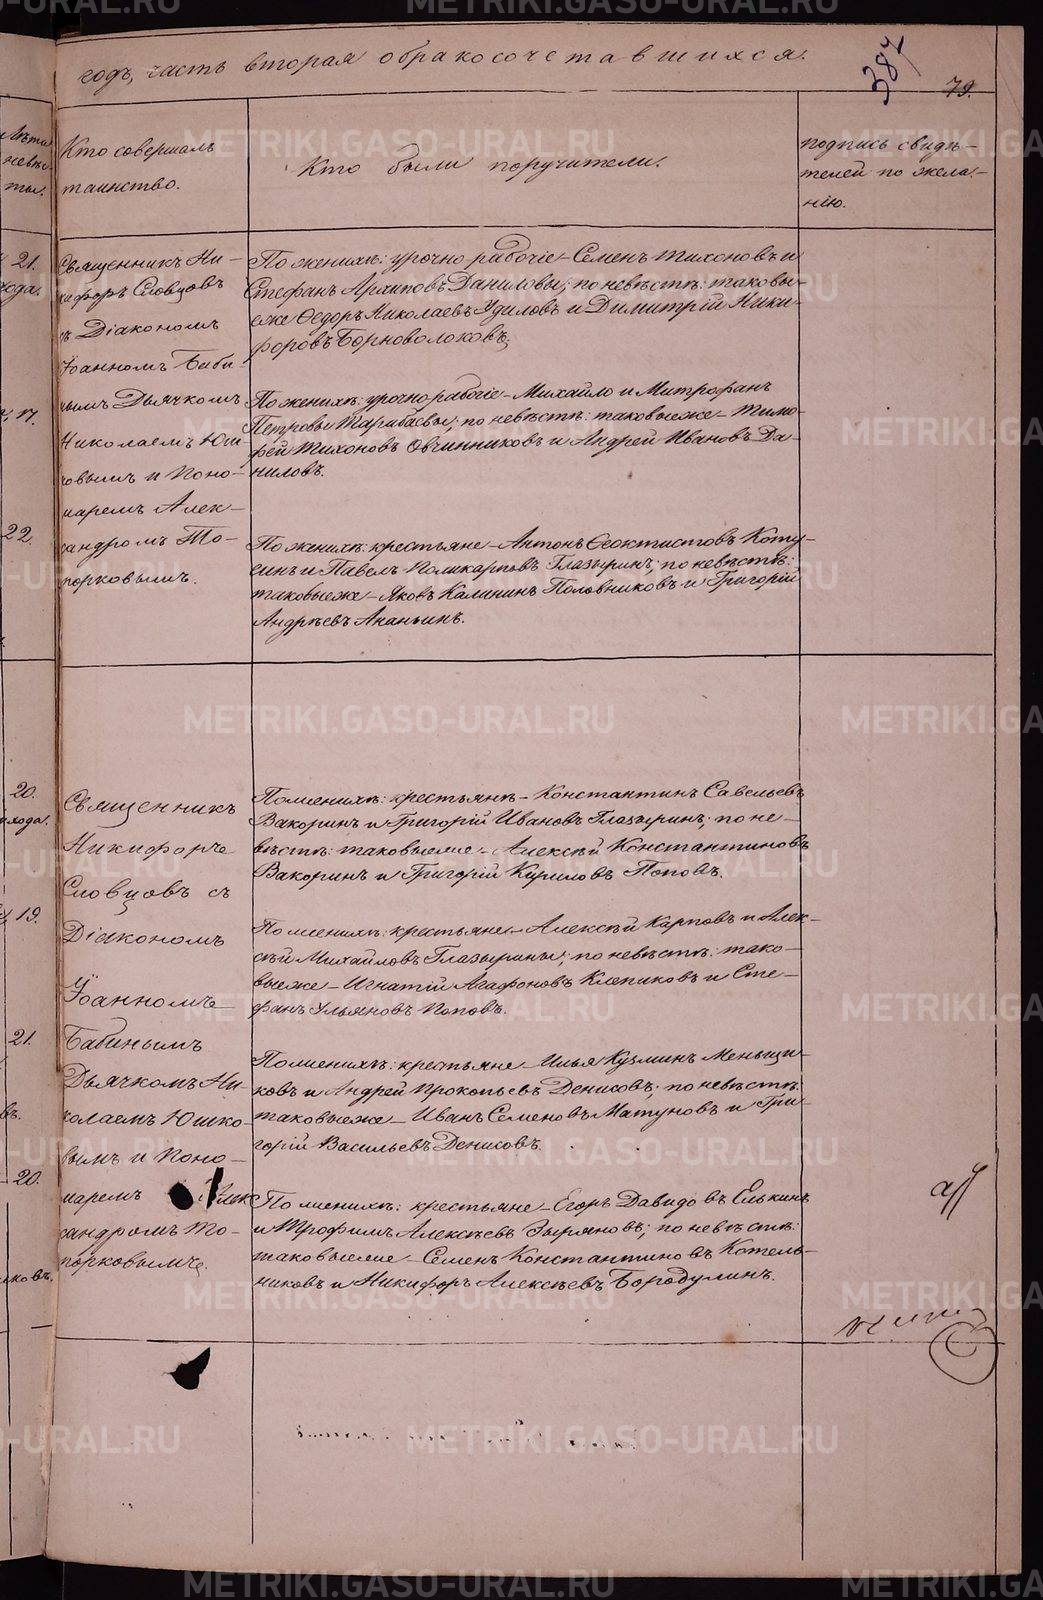 годъ, часть вторая о бракосочетавшихся.
387
79.
Лѣта
невѣс-
ты.
Кто совершалъ
таинство.
Кто были поручители.
подпись свидѣ-
телей по жела-
нію.
21.
Священникъ Ни-
кифоръ Словцовъ
съ Діакономъ
Іоанномъ Баби-
нымъ Дьячкомъ
Николаемъ Юш-
ковымъ и Поно-
маремъ Алек-
сандромъ То-
порковымъ.
По женихѣ: урочно рабочіе – Семенъ Тихоновъ и
Стефанъ Архиповъ Даниловы; по невѣстѣ: таковы-
еже Ѳедоръ Николаевъ Удиловъ и Димитрій Ники-
форовъ Борноволоковъ;
17.
По женихѣ: урочно рабочіе – Михайло и Митрофанъ
Петровы Тарибаевы; по невѣстѣ: таковыеже – Тимо-
фей Тихоновъ Овчинниковъ и Андрей Ивановъ Да-
ниловъ.
22.
По женихѣ: крестьяне – Антонъ Ѳеоктистовъ Коту-
синъ и Павелъ Поликарповъ Глазыринъ; по невѣстѣ:
таковыеже – Яковъ Калининъ Половниковъ и Григорій
Андреевъ Ананьинъ.
20.
Священникъ
Никифоръ
Словцовъ съ
Діакономъ
Іоанномъ
Бабинымъ
Дьячкомъ Ни-
колаемъ Юшко-
вымъ и Поно-
маремъ Алек
сандромъ То-
порковымъ.
По женихѣ: крестьянѣ – Константинъ Савельевъ
Вакоринъ и Григорій Ивановъ Глазыринъ; по не-
вѣстѣ: таковыеже – Алексѣй Константиновъ
Вакоринъ и Григорій Кириловъ Поповъ.
19.
По женихѣ: крестьяне – Алексѣй Карповъ и Алек-
сѣй Михайловъ Глазырины; по невѣстѣ: тако-
выеже – Игнатій Агафоновъ Клепиковъ и Сте-
фанъ Ульяновъ Поповъ.
21.
По женихѣ: крестьяне Илья Кузминъ Меньщи-
ковъ и Андрей Прокопьевъ Денисовъ; по невѣстѣ
таковыеже – Иванъ Семеновъ Матуновъ и Гри-
горій Васильевъ Денисовъ.
20.
По женихѣ: крестьяне – Егоръ Давидовъ Елькинъ
и Трофимъ Алексѣевъ Зыряновъ; по невѣстѣ:
таковыеже – Семенъ Константиновъ Котель-
никовъ и Никифоръ Алексѣевъ Бородулинъ.
METRIKI.GASO-URAL.RU